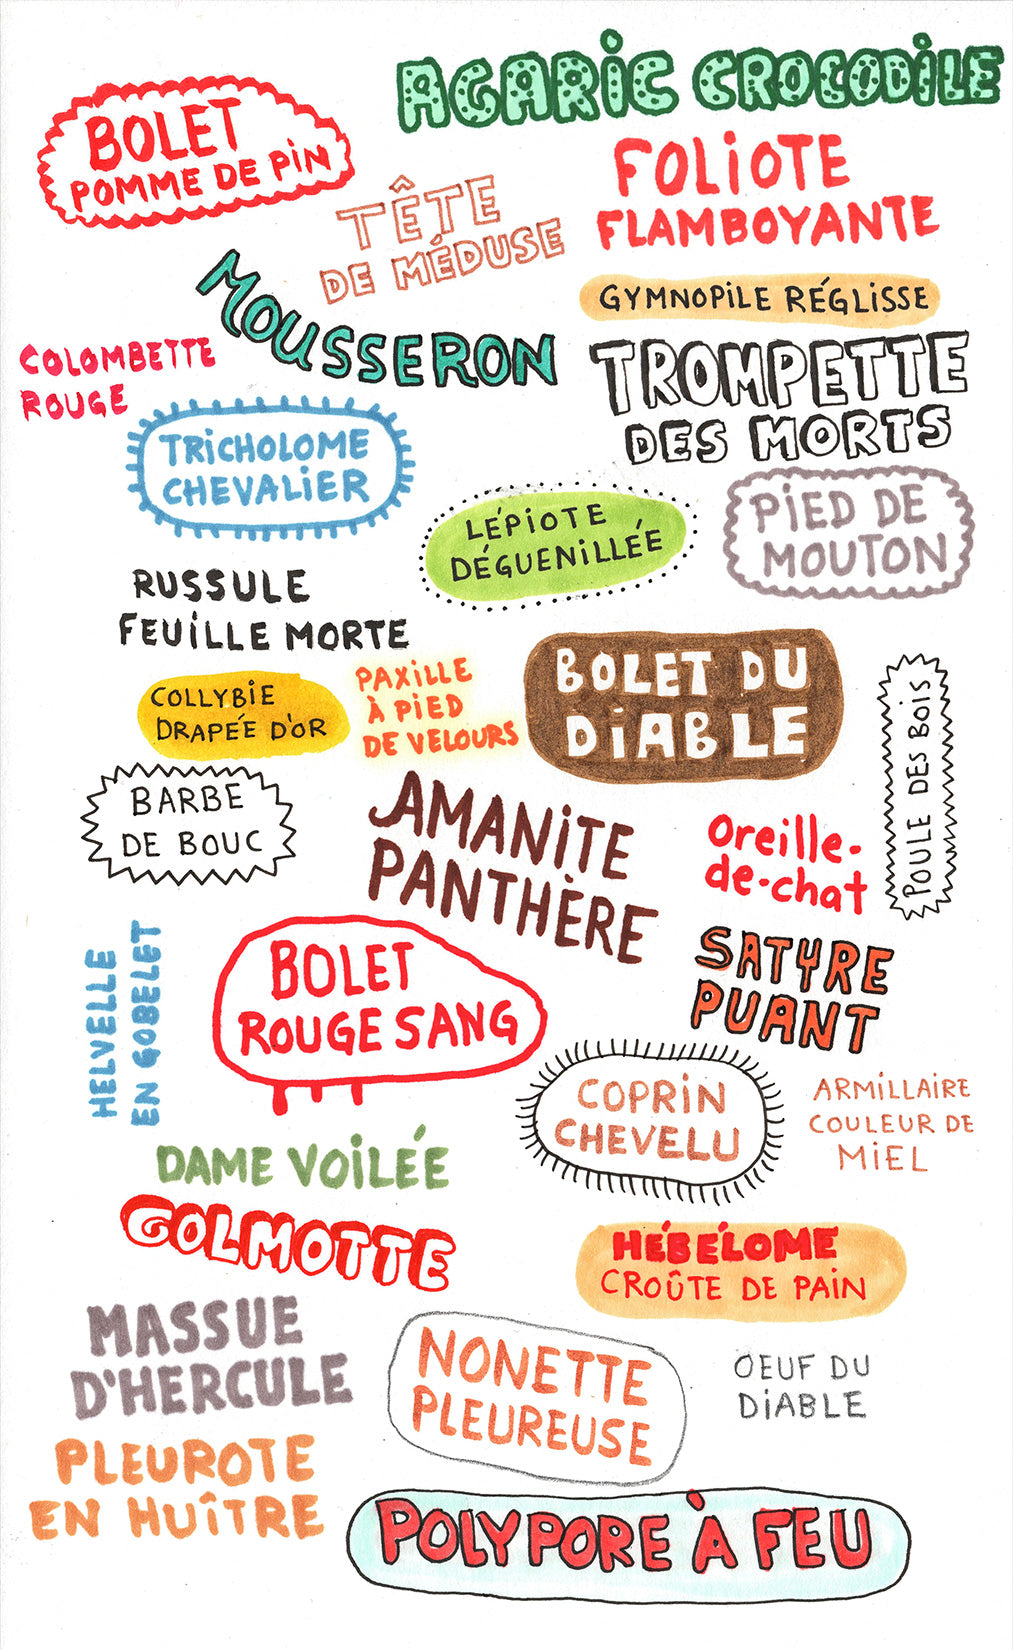 AGARiC CROCODiLE
BOLET
POMME DE PiN
FOLiOTE
FLAMBOYANTE
TÊTE
DE MÉDUSE
MOUSSERON
GYMNOPiLE RÉGLISSE
COLOMBETTE
ROUGE
TROMPETTE
DES MORTS
TRiCHOLOME
CHEVALiER
PiED DE
MOUTON
LÉPiOTE
DÉGUENiLLÉE
RUSSULE
FEUiLLE MORTE
BOLET DU
DiABLE
COLLYBiE
DRAPÉE D'OR
PAXILLE
À PiED
DE VELOURS
POULE DES BOIS
BARBE
DE BOUC
AMANiTE
PANTHÈRE
Oreille-
de-chat
HELVELLE
EN GOBELET
BOLET
ROUGE SANG
SATYRE
PUANT
COPRiN
CHEVELU
ARMILLAIRE
COULEUR DE
MiEL
DAME VOiLÉE
GOLMOTTE
HÉBÉLOME
CROÛTE DE PAiN
MASSUE
D'HERCULE
NONETTE
PLEUREUSE
OEUF DU
DiABLE
PLEUROTE
EN HUÎTRE
POLYPORE À FEU